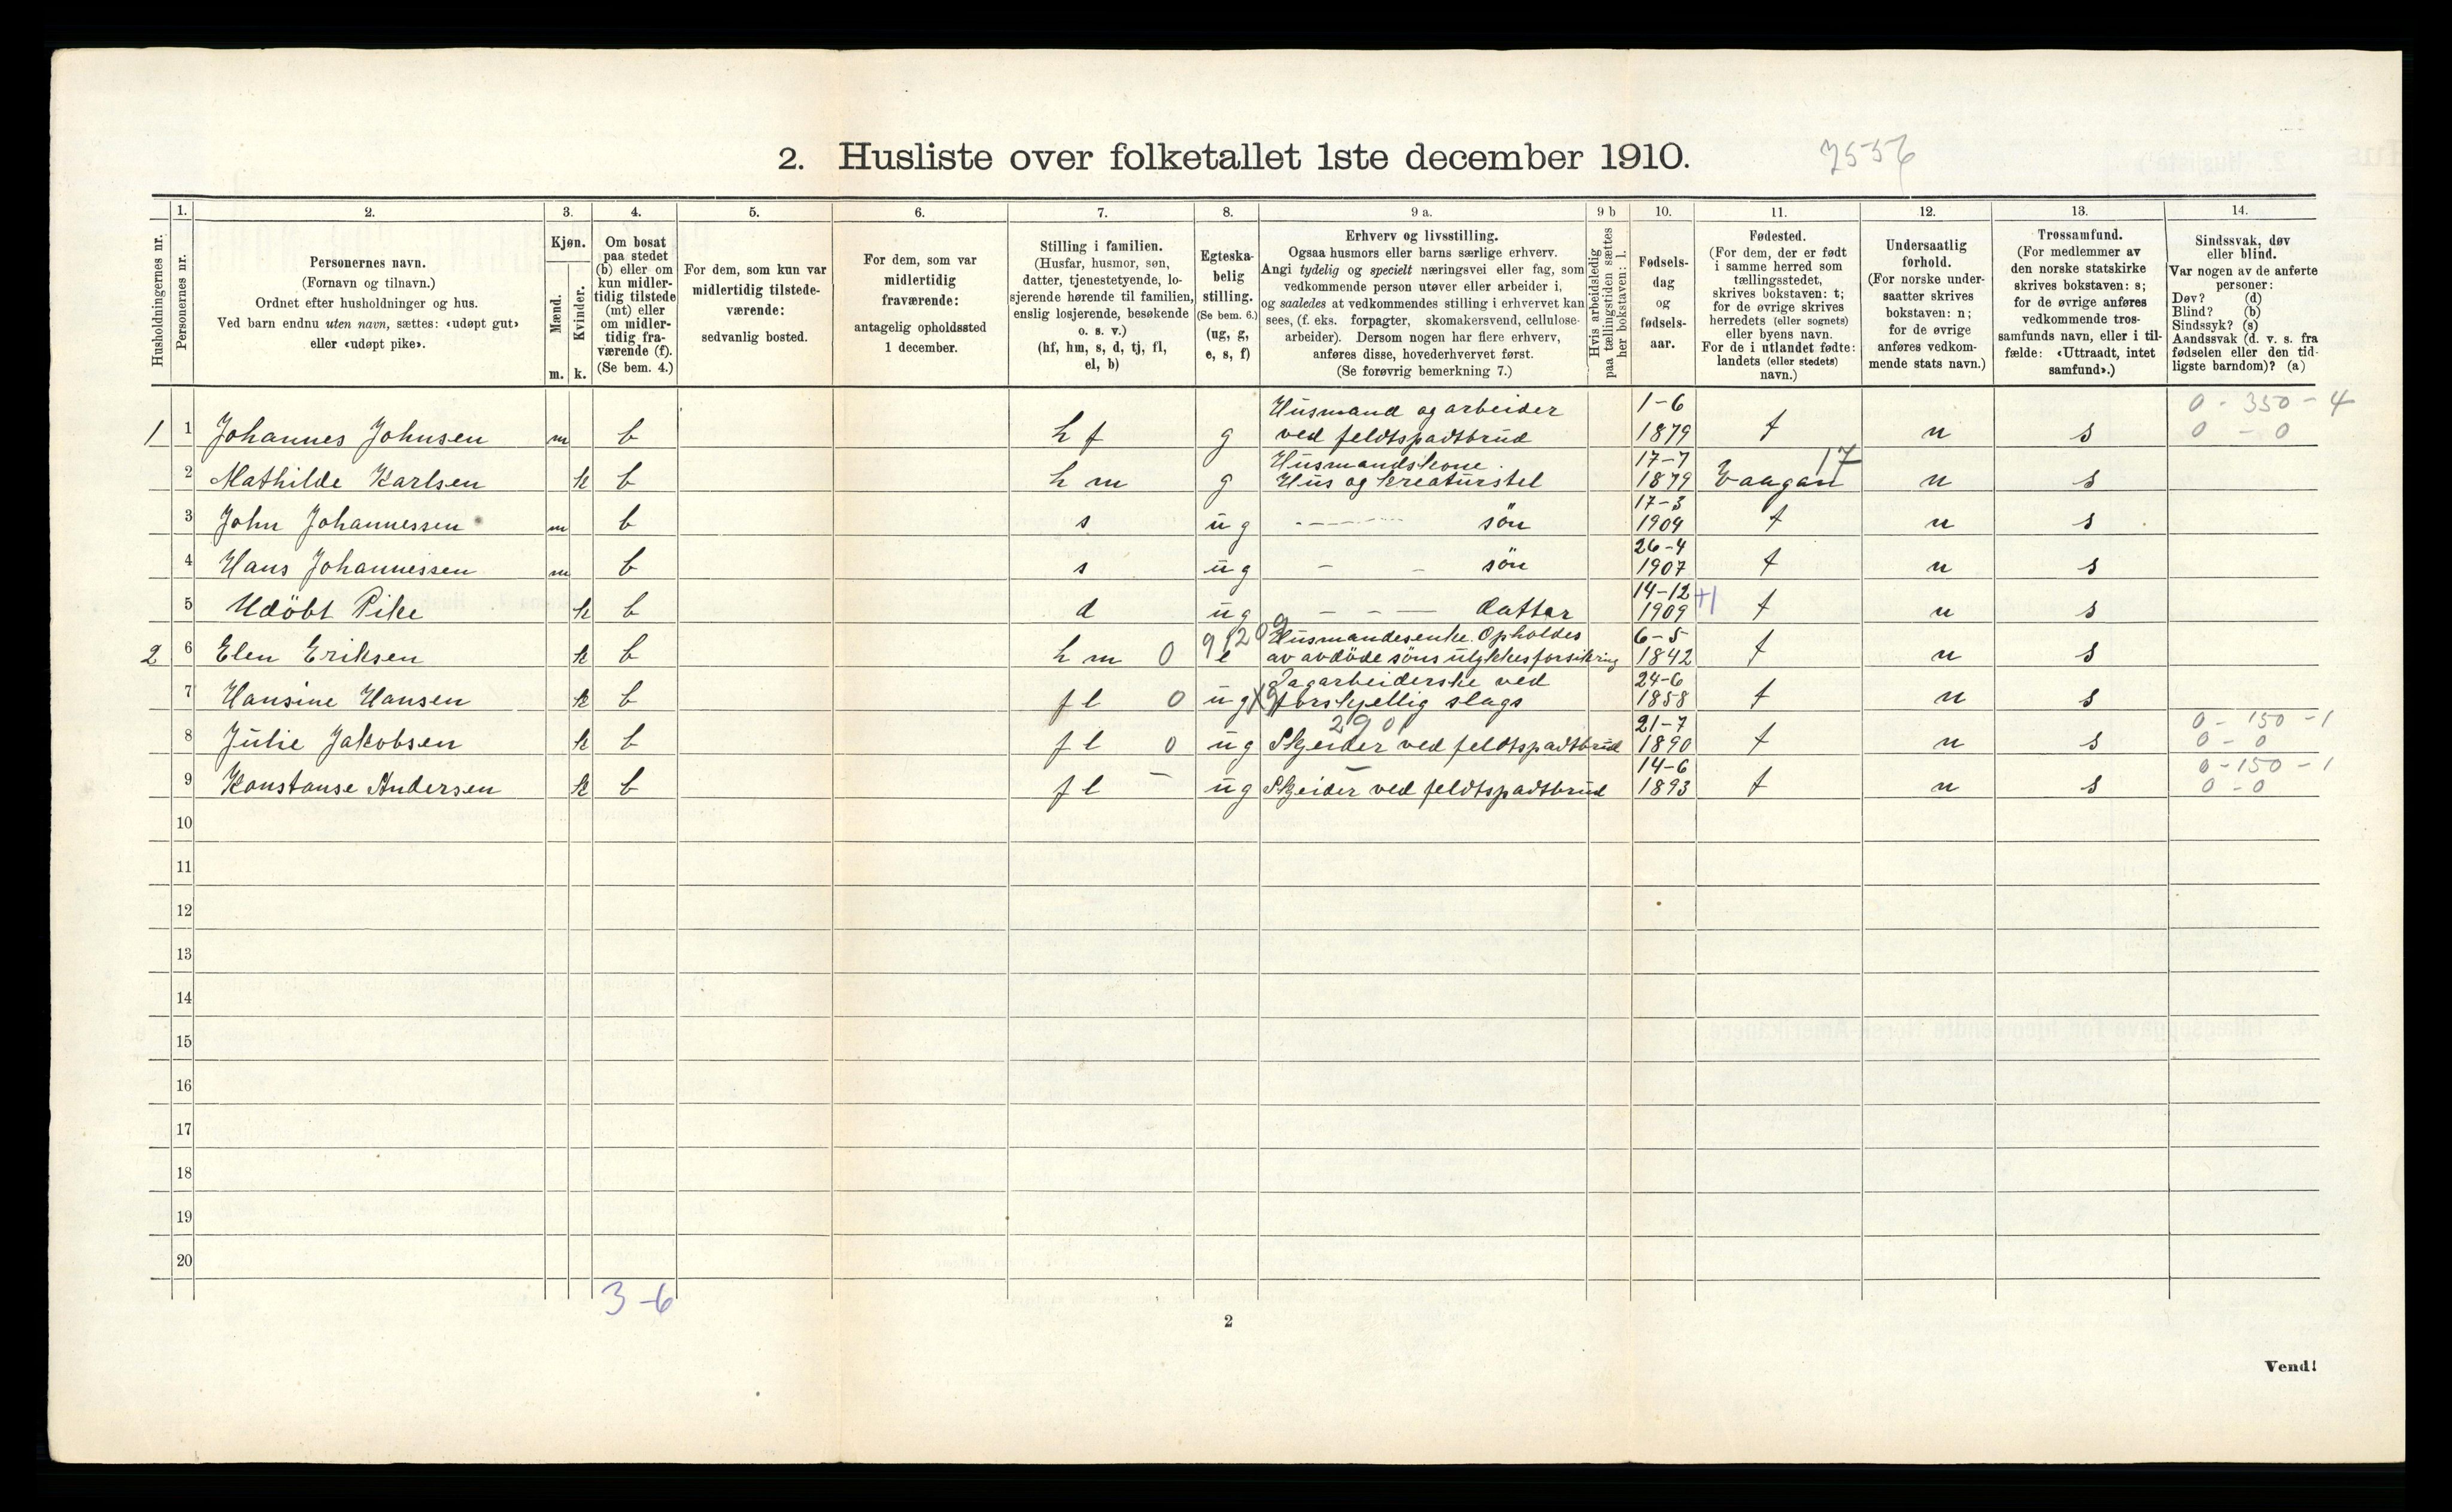 2. Husliste over folketallet 1ste december 1910.
Husholdningernes nr.
1.
Personernes nr.
2.
Personernes navn.
(Fornavn og tilnavn.)
Ordnet efter husholdninger og hus.
Ved barn endnu uten navn, sættes: «udøpt gut»
eller «udøpt pike».
3.
Kjøn.
Mænd.
Kvinder.
m. k.
4.
Om bosat
paa stedet
(b) eller om
kun midler-
tidig tilstede
(mt) eller
om midler-
tidig fra-
værende (f).
(Se bem. 4.)
5.
For dem, som kun var
midlertidig tilstede-
værende:
sedvanlig bosted.
6.
For dem, som var
midlertidig
fraværende:
antagelig opholdssted
1 december.
7.
Stilling i familien.
(Husfar, husmor, søn,
datter, tjenestetyende, lo-
sjerende hørende til familien,
enslig losjerende, besøkende
o. s. v.)
(hf, hm, s, d, tj, fl,
el, b)
8.
Egteska-
belig
stilling.
(Se bem. 6.)
(ug, g,
e, s, f)
9 a.
Erhverv og livsstilling.
Ogsaa husmors eller barns særlige erhverv.
Angi tydelig og specielt næringsvei eller fag, som
vedkommende person utøver eller arbeider i,
og saaledes at vedkommendes stilling i erhvervet kan
sees, (f. eks. forpagter, skomakersvend, cellulose-
arbeider). Dersom nogen har flere erhverv,
anføres disse, hovederhvervet først.
(Se forøvrig bemerkning 7.)
9 b
Hvis arbeidsledig
paa tællingstiden sættes
her bokstaven: l.
10.
Fødsels-
dag
og
fødsels-
aar.
11.
Fødested.
(For dem, der er født
i samme herred som
tællingsstedet,
skrives bokstaven: t;
for de øvrige skrives
herredets (eller sognets)
eller byens navn.
For de i utlandet fødte:
landets (eller stedets)
navn.)
12.
Undersaatlig
forhold.
(For norske under-
saatter skrives
bokstaven: n;
for de øvrige
anføres vedkom-
mende stats navn.)
13.
Trossamfund.
(For medlemmer av
den norske statskirke
skrives bokstaven: s;
for de øvrige anføres
vedkommende tros-
samfunds navn, eller i til-
fælde: «Uttraadt, intet
samfund».)
14.
Sindssvak, døv
eller blind.
Var nogen av de anførte
personer:
Døv? (d)
Blind? (b)
Sindssyk? (s)
Aandssvak (d. v. s. fra
fødselen eller den tid-
ligste barndom)? (a)
Husmand og arbeider 1-6 0 - 350 - 4
1 1 Johannes Johnsen m b h f g ved feldtspadtbrud 1879 t n s 0 - 0
Husmandskone. 17-7 17
2 Mathilde Karlsen k b h m g Hus og kreaturstel 1879 Vaagan n s
17-3
3 John Johannessen m b s ug - - - - søn 1904 t n s
26-4
4 Hans Johannessen m b s ug - - søn 1907 t n s
14-12 +1
5 Udöbt Pike k b d ug - - - datter 1909 t n s
Husmandesenke. Opholdes 6-5
2 6 Elen Eriksen k b h m 0 e av avdöde søns ulykkesforsikring 1842 t n s
Dagarbeiderske ved 24-6
7 Hansine Hansen k b f l 0 ug forskjellig slags 1858 t n s
290 21-7 0 - 150 - 1
8 Julie Jakobsen k b f l 0 ug Skjeider ved feldtspadtbrud 1890 t n s 0 - 0
14-6 0 - 150 - 1
9 Konstanse Andersen k b f l - ug Skjeider ved feldtspadtbrud 1893 t n s 0 - 0
10
11
12
13
14
15
16
17
18
19
20
3-6
2
Vend!